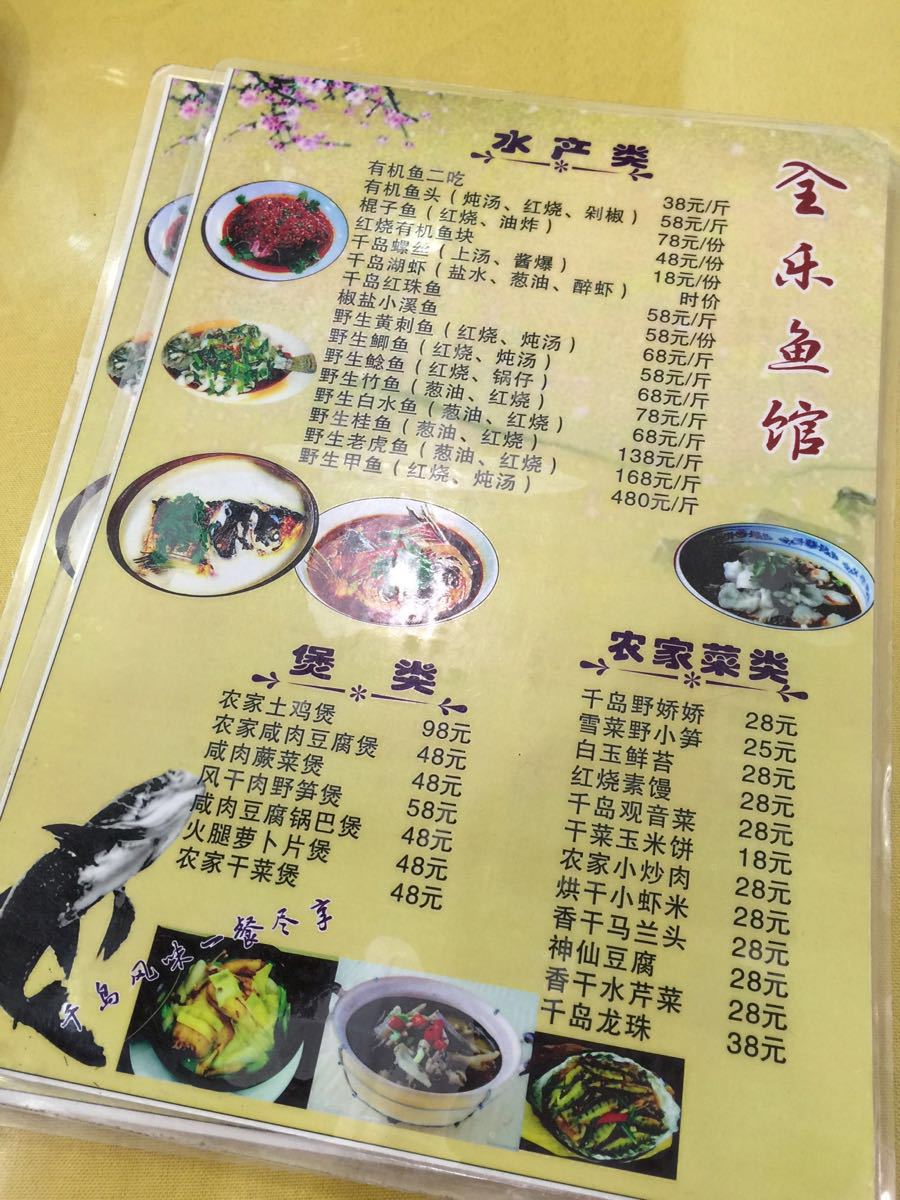 全乐鱼馆
水产类
有机鱼二吃 38元/斤
有机鱼头（炖汤、红烧、剁椒） 58元/斤
棍子鱼（红烧、油炸） 78元/份
红烧有机鱼块 48元/份
千岛螺丝（上汤、酱爆） 18元/份
千岛湖虾（盐水、葱油、醉虾） 时价
千岛红珠鱼 58元/斤
椒盐小溪鱼 58元/份
野生黄刺鱼（红烧、炖汤） 68元/斤
野生鲫鱼（红烧、炖汤） 58元/斤
野生鲶鱼（红烧、锅仔） 68元/斤
野生竹鱼（葱油、红烧） 78元/斤
野生白水鱼（葱油、红烧） 68元/斤
野生桂鱼（葱油、红烧） 138元/斤
野生老虎鱼（葱油、红烧） 168元/斤
野生甲鱼（红烧、炖汤） 480元/斤
煲类
农家土鸡煲 98元
农家咸肉豆腐煲 48元
咸肉蕨菜煲 48元
风干肉野笋煲 58元
咸肉豆腐锅巴煲 48元
火腿萝卜片煲 48元
农家干菜煲 48元
农家菜类
千岛野娇娇 28元
雪菜野小笋 25元
白玉鲜苔 28元
红烧素馒 28元
千岛观音菜 28元
干菜玉米饼 18元
农家小炒肉 28元
烘干小虾米 28元
香干马兰头 28元
神仙豆腐 28元
香干水芹菜 28元
千岛龙珠 38元
千岛风味一餐尽享